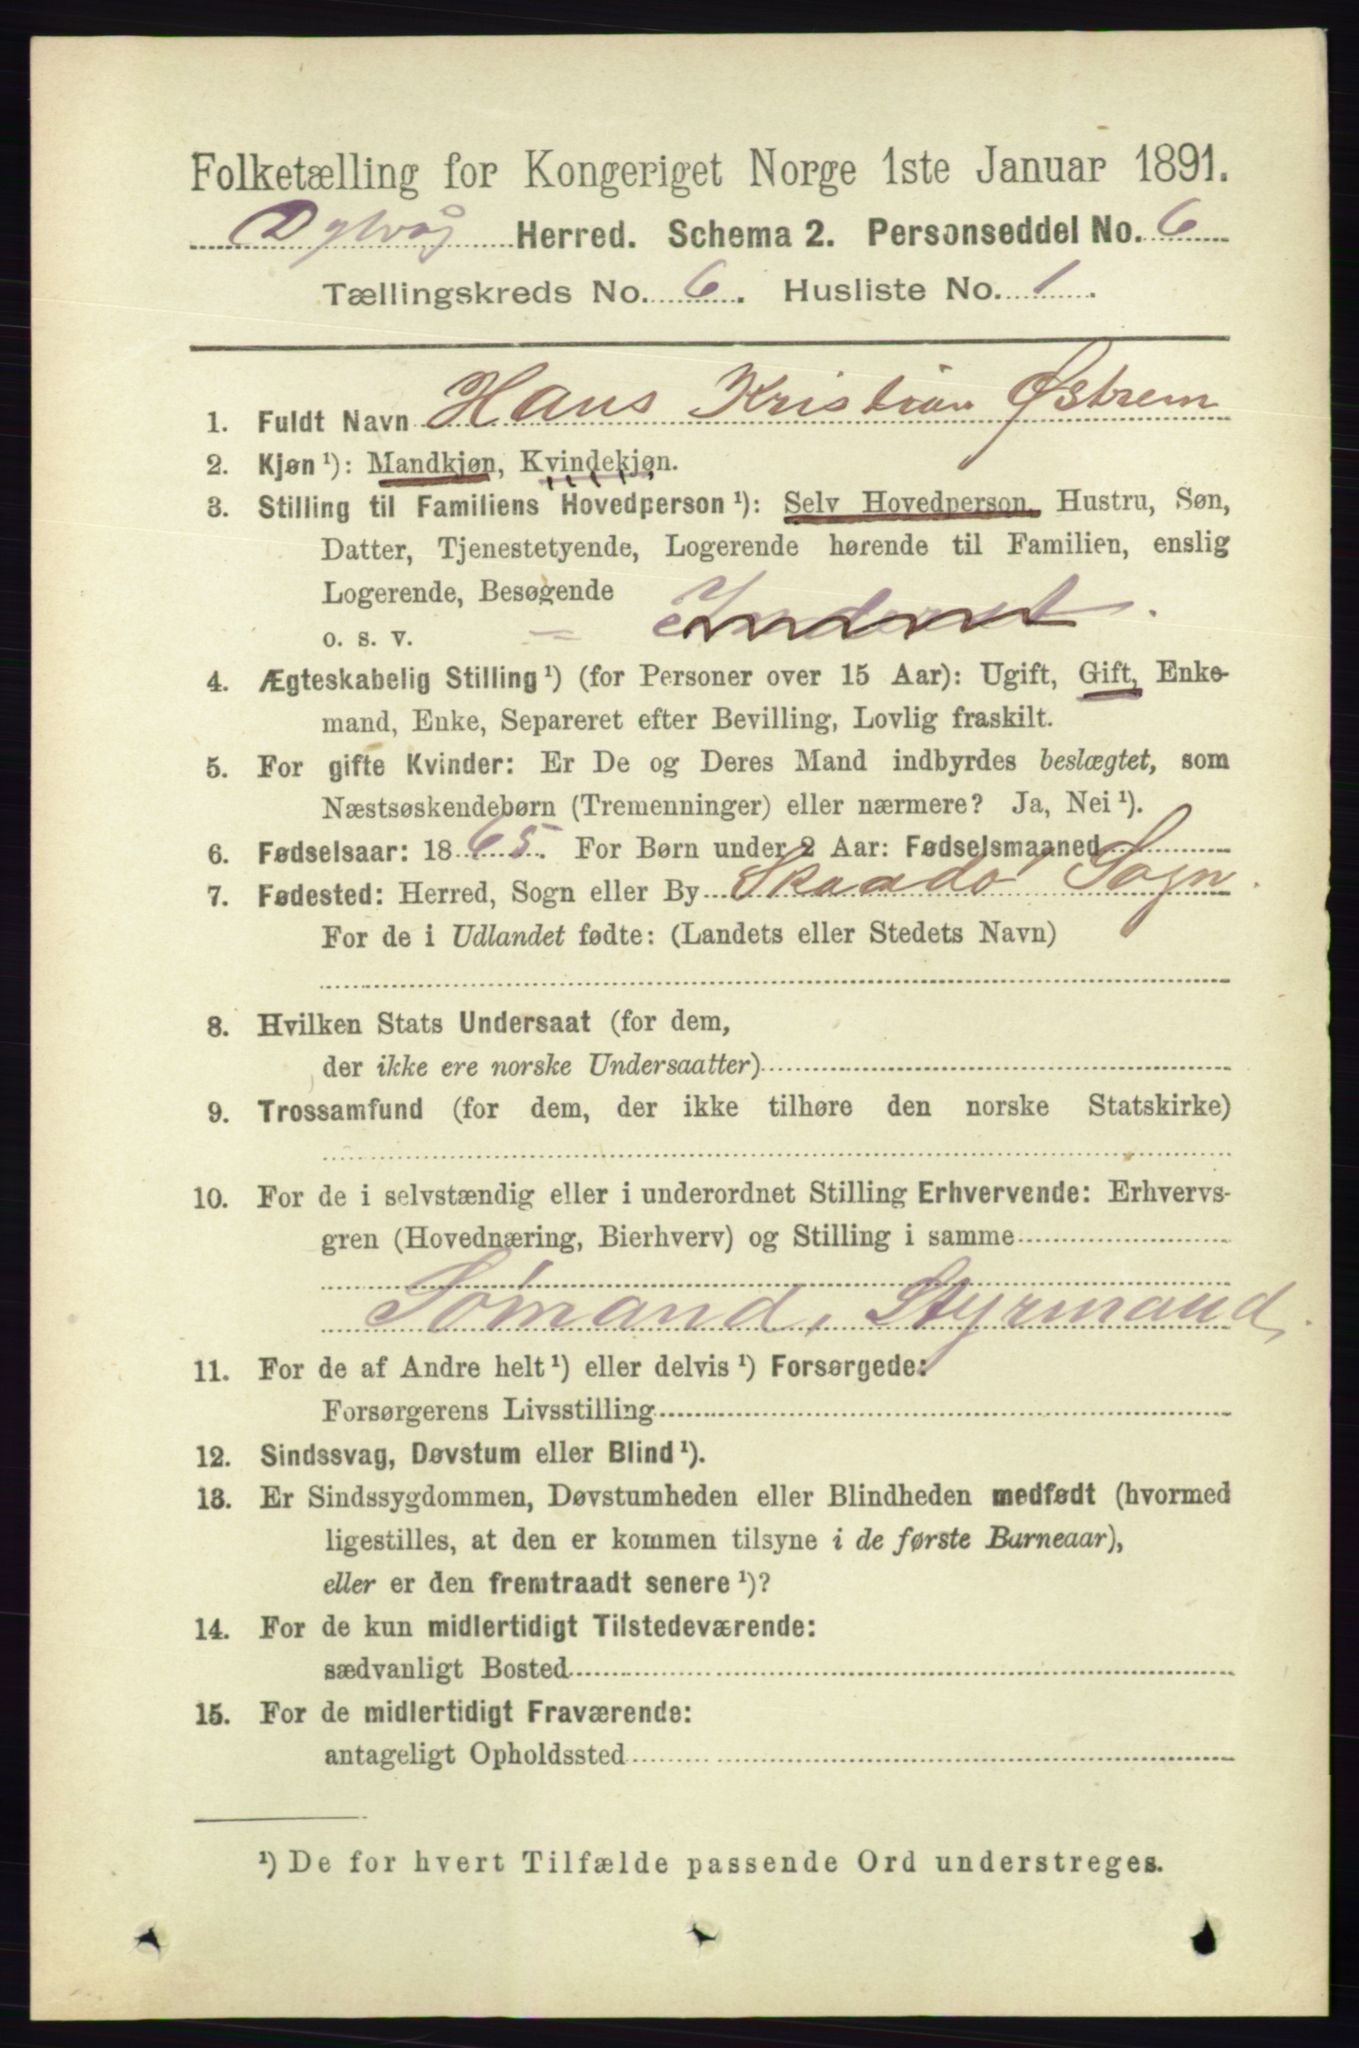 Folketælling for Kongeriget Norge 1ste Januar 1891.
Dybvåg Herred. Schema 2. Personseddel No. 6
Tællingskreds No. 6. Husliste No. 1.
1. Fuldt Navn Hans Kristian Østrem
2. Kjøn ¹): Mandkjøn, Kvindekjøn.
3. Stilling til Familiens Hovedperson ¹): Selv Hovedperson, Hustru, Søn,
Datter, Tjenestetyende, Logerende hørende til Familien, enslig
Logerende, Besøgende
o. s. v.
4. Ægteskabelig Stilling ¹) (for Personer over 15 Aar): Ugift, Gift, Enke-
mand, Enke, Separeret efter Bevilling, Lovlig fraskilt.
5. For gifte Kvinder: Er De og Deres Mand indbyrdes beslægtet, som
Næstsøskendebørn (Tremenninger) eller nærmere? Ja, Nei ¹).
6. Fødselsaar: 1865. For Børn under 2 Aar: Fødselsmaaned
7. Fødested: Herred, Sogn eller By Skaadø Sogn.
For de i Udlandet fødte: (Landets eller Stedets Navn)
8. Hvilken Stats Undersaat (for dem,
der ikke ere norske Undersaatter)
9. Trossamfund (for dem, der ikke tilhøre den norske Statskirke)
10. For de i selvstændig eller i underordnet Stilling Erhvervende: Erhvervs-
gren (Hovednæring, Bierhverv) og Stilling i samme
Sømand, Styrmand,
11. For de af Andre helt ¹) eller delvis ¹) Forsørgede:
Forsørgerens Livsstilling
12. Sindssvag, Døvstum eller Blind ¹).
13. Er Sindssygdommen, Døvstumheden eller Blindheden medfødt (hvormed
ligestilles, at den er kommen tilsyne i de første Barneaar),
eller er den fremtraadt senere ¹)?
14. For de kun midlertidigt Tilstedeværende:
sædvanligt Bosted
15. For de midlertidigt Fraværende:
antageligt Opholdssted
¹) De for hvert Tilfælde passende Ord understreges.